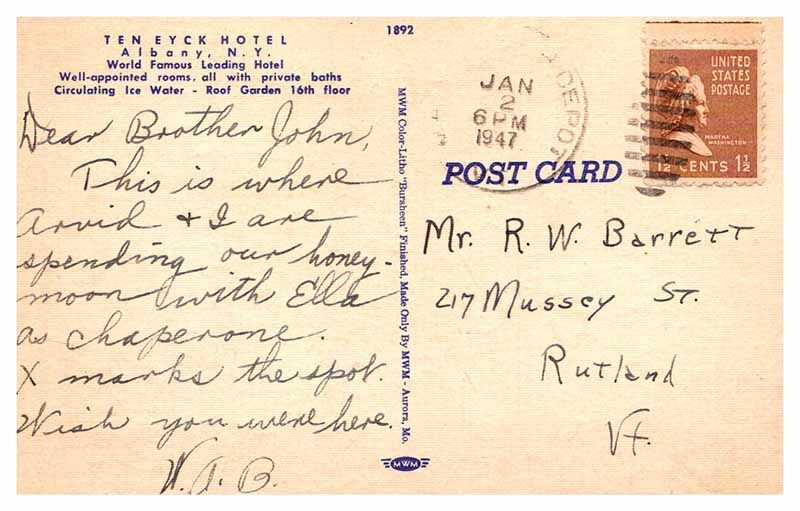 TEN EYCK HOTEL
Albany, N. Y.
World Famous Leading Hotel
Well-appointed rooms, all with private baths
Circulating Ice Water - Roof Garden 16th floor
Dear Brother John,
This is where
Arvid & I are
spending our honey-
moon with Ella
as chaperone.
X marks the spot.
Wish you were here.
W.A.B.
1892
MWM Color-Litho "Buraheen" Finished, Made Only By MWM - Aurora, Mo.
MWM
DEPOT
JAN
2
6 PM
1947
POST CARD
UNITED
STATES
POSTAGE
MARTHA
WASHINGTON
1½ CENTS 1½
Mr. R. W. Barrett
217 Mussey St.
Rutland
Vt.